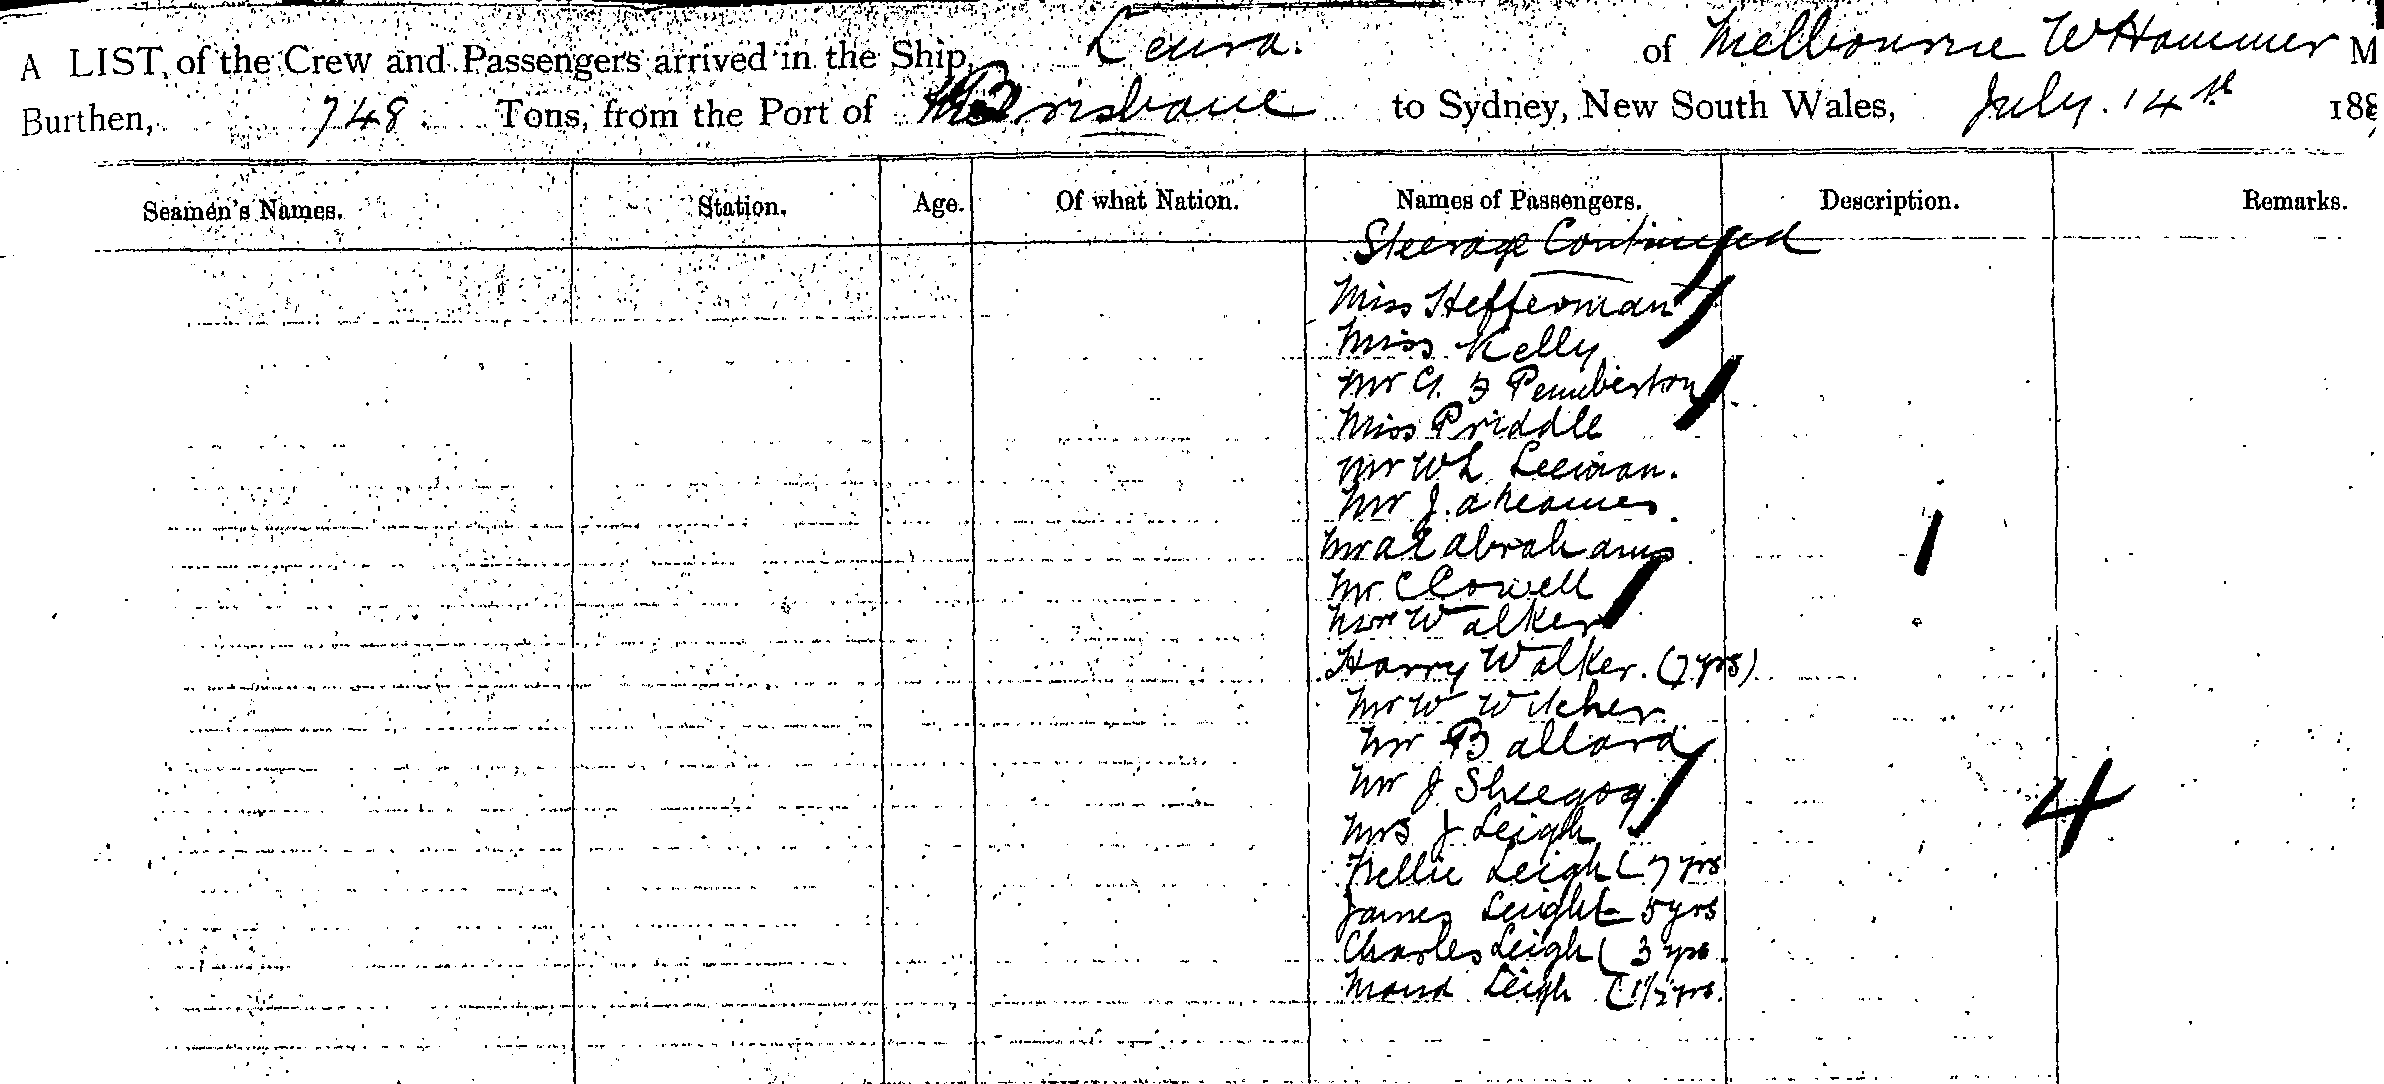 A LIST of the Crew and Passengers arrived in the Ship, Leura. of Melbourne W Hammer M
Burthen, 748 Tons, from the Port of Brisbane to Sydney, New South Wales, July. 14th 188
Seamen's Names. Station. Age. Of what Nation. Names of Passengers. Description. Remarks.
Steerage Continued
Miss Hefferman
Miss Kelly
Mr G. Pemberton
Miss Priddle
Mr W L Leeman.
Mr J. A
Mr A E Abrahams
Mr C Cowell
Walker
Harry Walker. (7 yrs)
Mr W Witcher
Mr Ballard
Mr J. Sheegog
Mrs J Leigh
Nellie Leigh (7 yrs
James Leigh (5 yrs
Charles Leigh (3 yrs
Maud Leigh (1½ yrs.
4